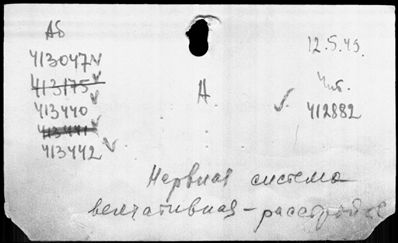 Аб
413047
12.5.43.
413175
А
Чит.
413440
412882
413441
413442
Нервная система
вегетативная - расстройст